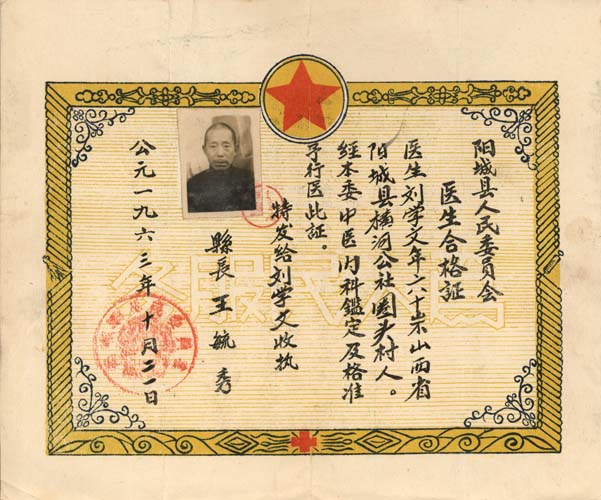 阳城县人民委员会
医生合格证
医生刘学文年六十岁山西省
阳城县横河公社圈头村人。
经本委中医内科鑑定及格准
予行医此证。
特发给刘学文收执
縣長王毓秀
公元一九六三年十月二一日
为人民服务